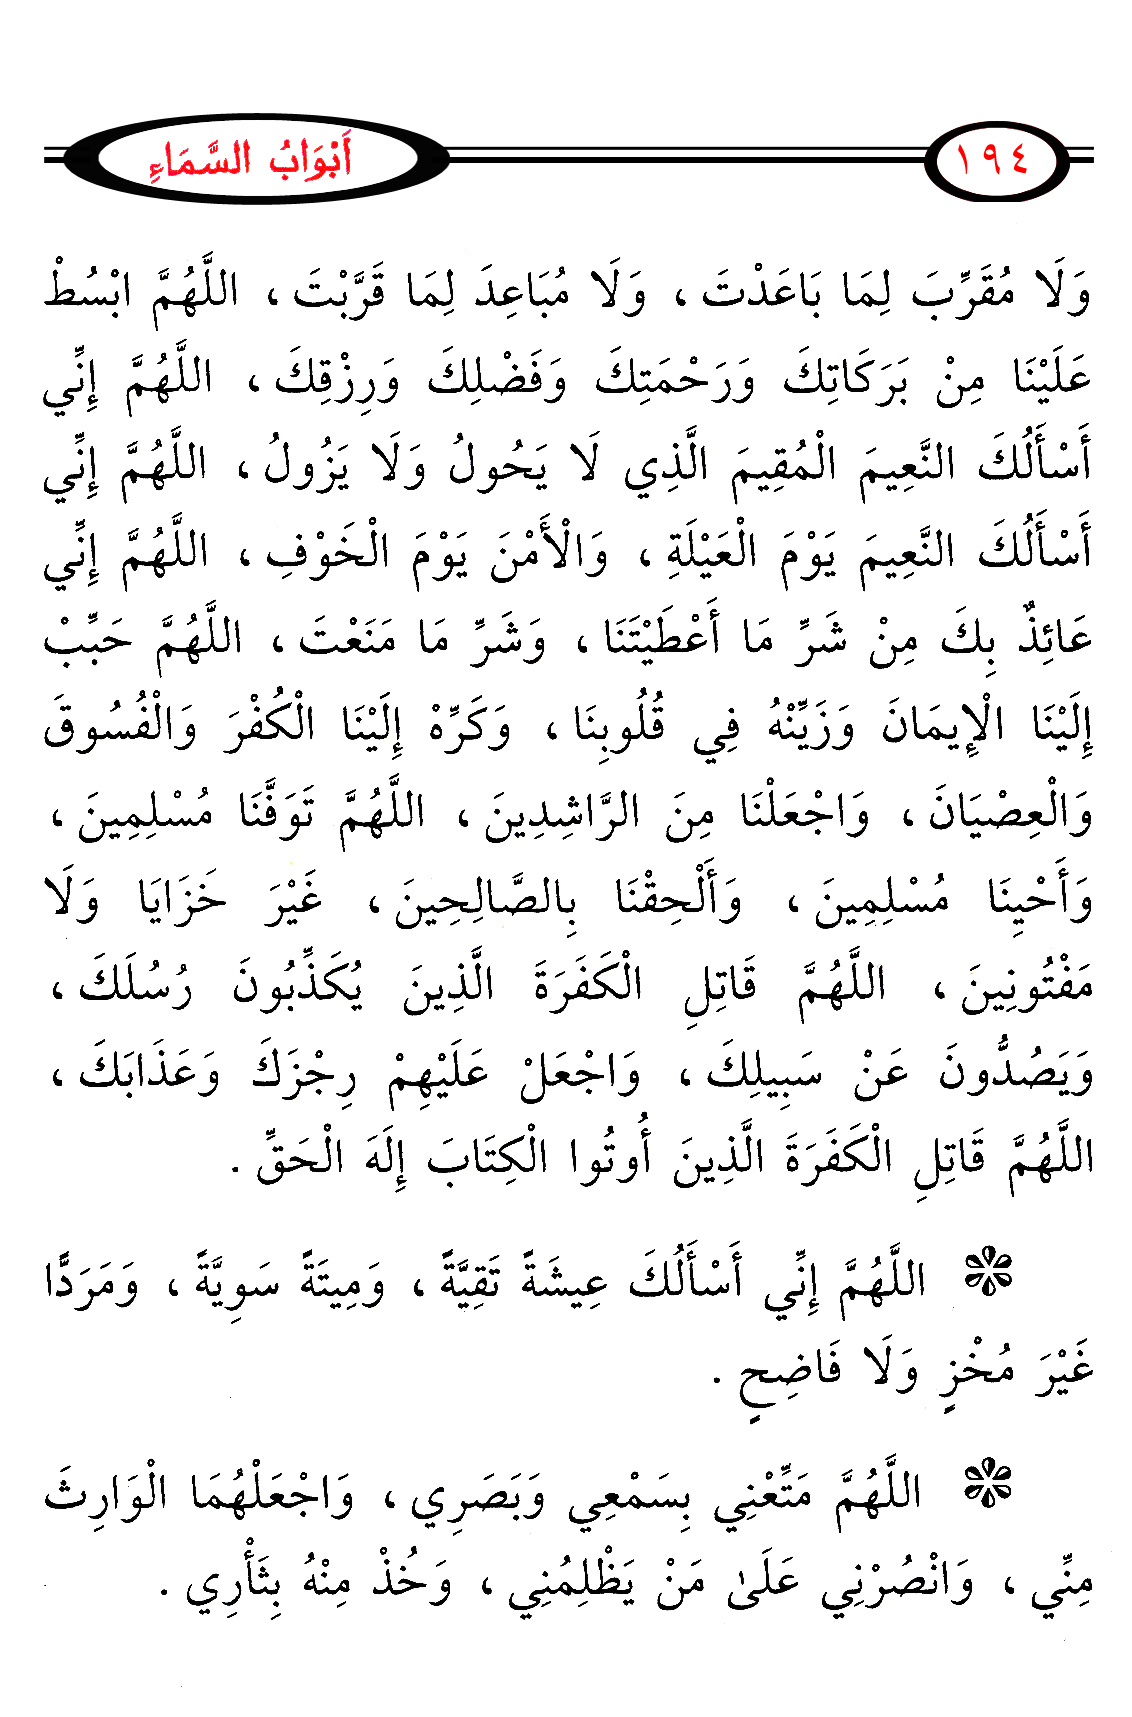 ١٩٤
أَبْوَابُ السَّمَاءِ
وَلَا مُقَرِّبَ لِمَا بَاعَدْتَ ، وَلَا مُبَاعِدَ لِمَا قَرَّبْتَ ، اللَّهُمَّ ابْسُطْ
عَلَيْنَا مِنْ بَرَكَاتِكَ وَرَحْمَتِكَ وَفَضْلِكَ وَرِزْقِكَ ، اللَّهُمَّ إِنِّي
أَسْأَلُكَ النَّعِيمَ الْمُقِيمَ الَّذِي لَا يَحُولُ وَلَا يَزُولُ ، اللَّهُمَّ إِنِّي
أَسْأَلُكَ النَّعِيمَ يَوْمَ الْعَيْلَةِ ، وَالْأَمْنَ يَوْمَ الْخَوْفِ ، اللَّهُمَّ إِنِّي
عَائِذٌ بِكَ مِنْ شَرِّ مَا أَعْطَيْتَنَا ، وَشَرِّ مَا مَنَعْتَ ، اللَّهُمَّ حَبِّبْ
إِلَيْنَا الْإِيمَانَ وَزَيِّنْهُ فِي قُلُوبِنَا ، وَكَرِّهْ إِلَيْنَا الْكُفْرَ وَالْفُسُوقَ
وَالْعِصْيَانَ ، وَاجْعَلْنَا مِنَ الرَّاشِدِينَ ، اللَّهُمَّ تَوَفَّنَا مُسْلِمِينَ ،
وَأَحْيِنَا مُسْلِمِينَ ، وَأَلْحِقْنَا بِالصَّالِحِينَ ، غَيْرَ خَزَايَا وَلَا
مَفْتُونِينَ ، اللَّهُمَّ قَاتِلِ الْكَفَرَةَ الَّذِينَ يُكَذِّبُونَ رُسُلَكَ ،
وَيَصُدُّونَ عَنْ سَبِيلِكَ ، وَاجْعَلْ عَلَيْهِمْ رِجْزَكَ وَعَذَابَكَ ،
اللَّهُمَّ قَاتِلِ الْكَفَرَةَ الَّذِينَ أُوتُوا الْكِتَابَ إِلَهَ الْحَقِّ .
اللَّهُمَّ إِنِّي أَسْأَلُكَ عِيشَةً تَقِيَّةً ، وَمِيتَةً سَوِيَّةً ، وَمَرَدًّا
غَيْرَ مُخْزٍ وَلَا فَاضِحٍ .
اللَّهُمَّ مَتِّعْنِي بِسَمْعِي وَبَصَرِي ، وَاجْعَلْهُمَا الْوَارِثَ
مِنِّي ، وَانْصُرْنِي عَلَىٰ مَنْ يَظْلِمُنِي ، وَخُذْ مِنْهُ بِثَأْرِي .